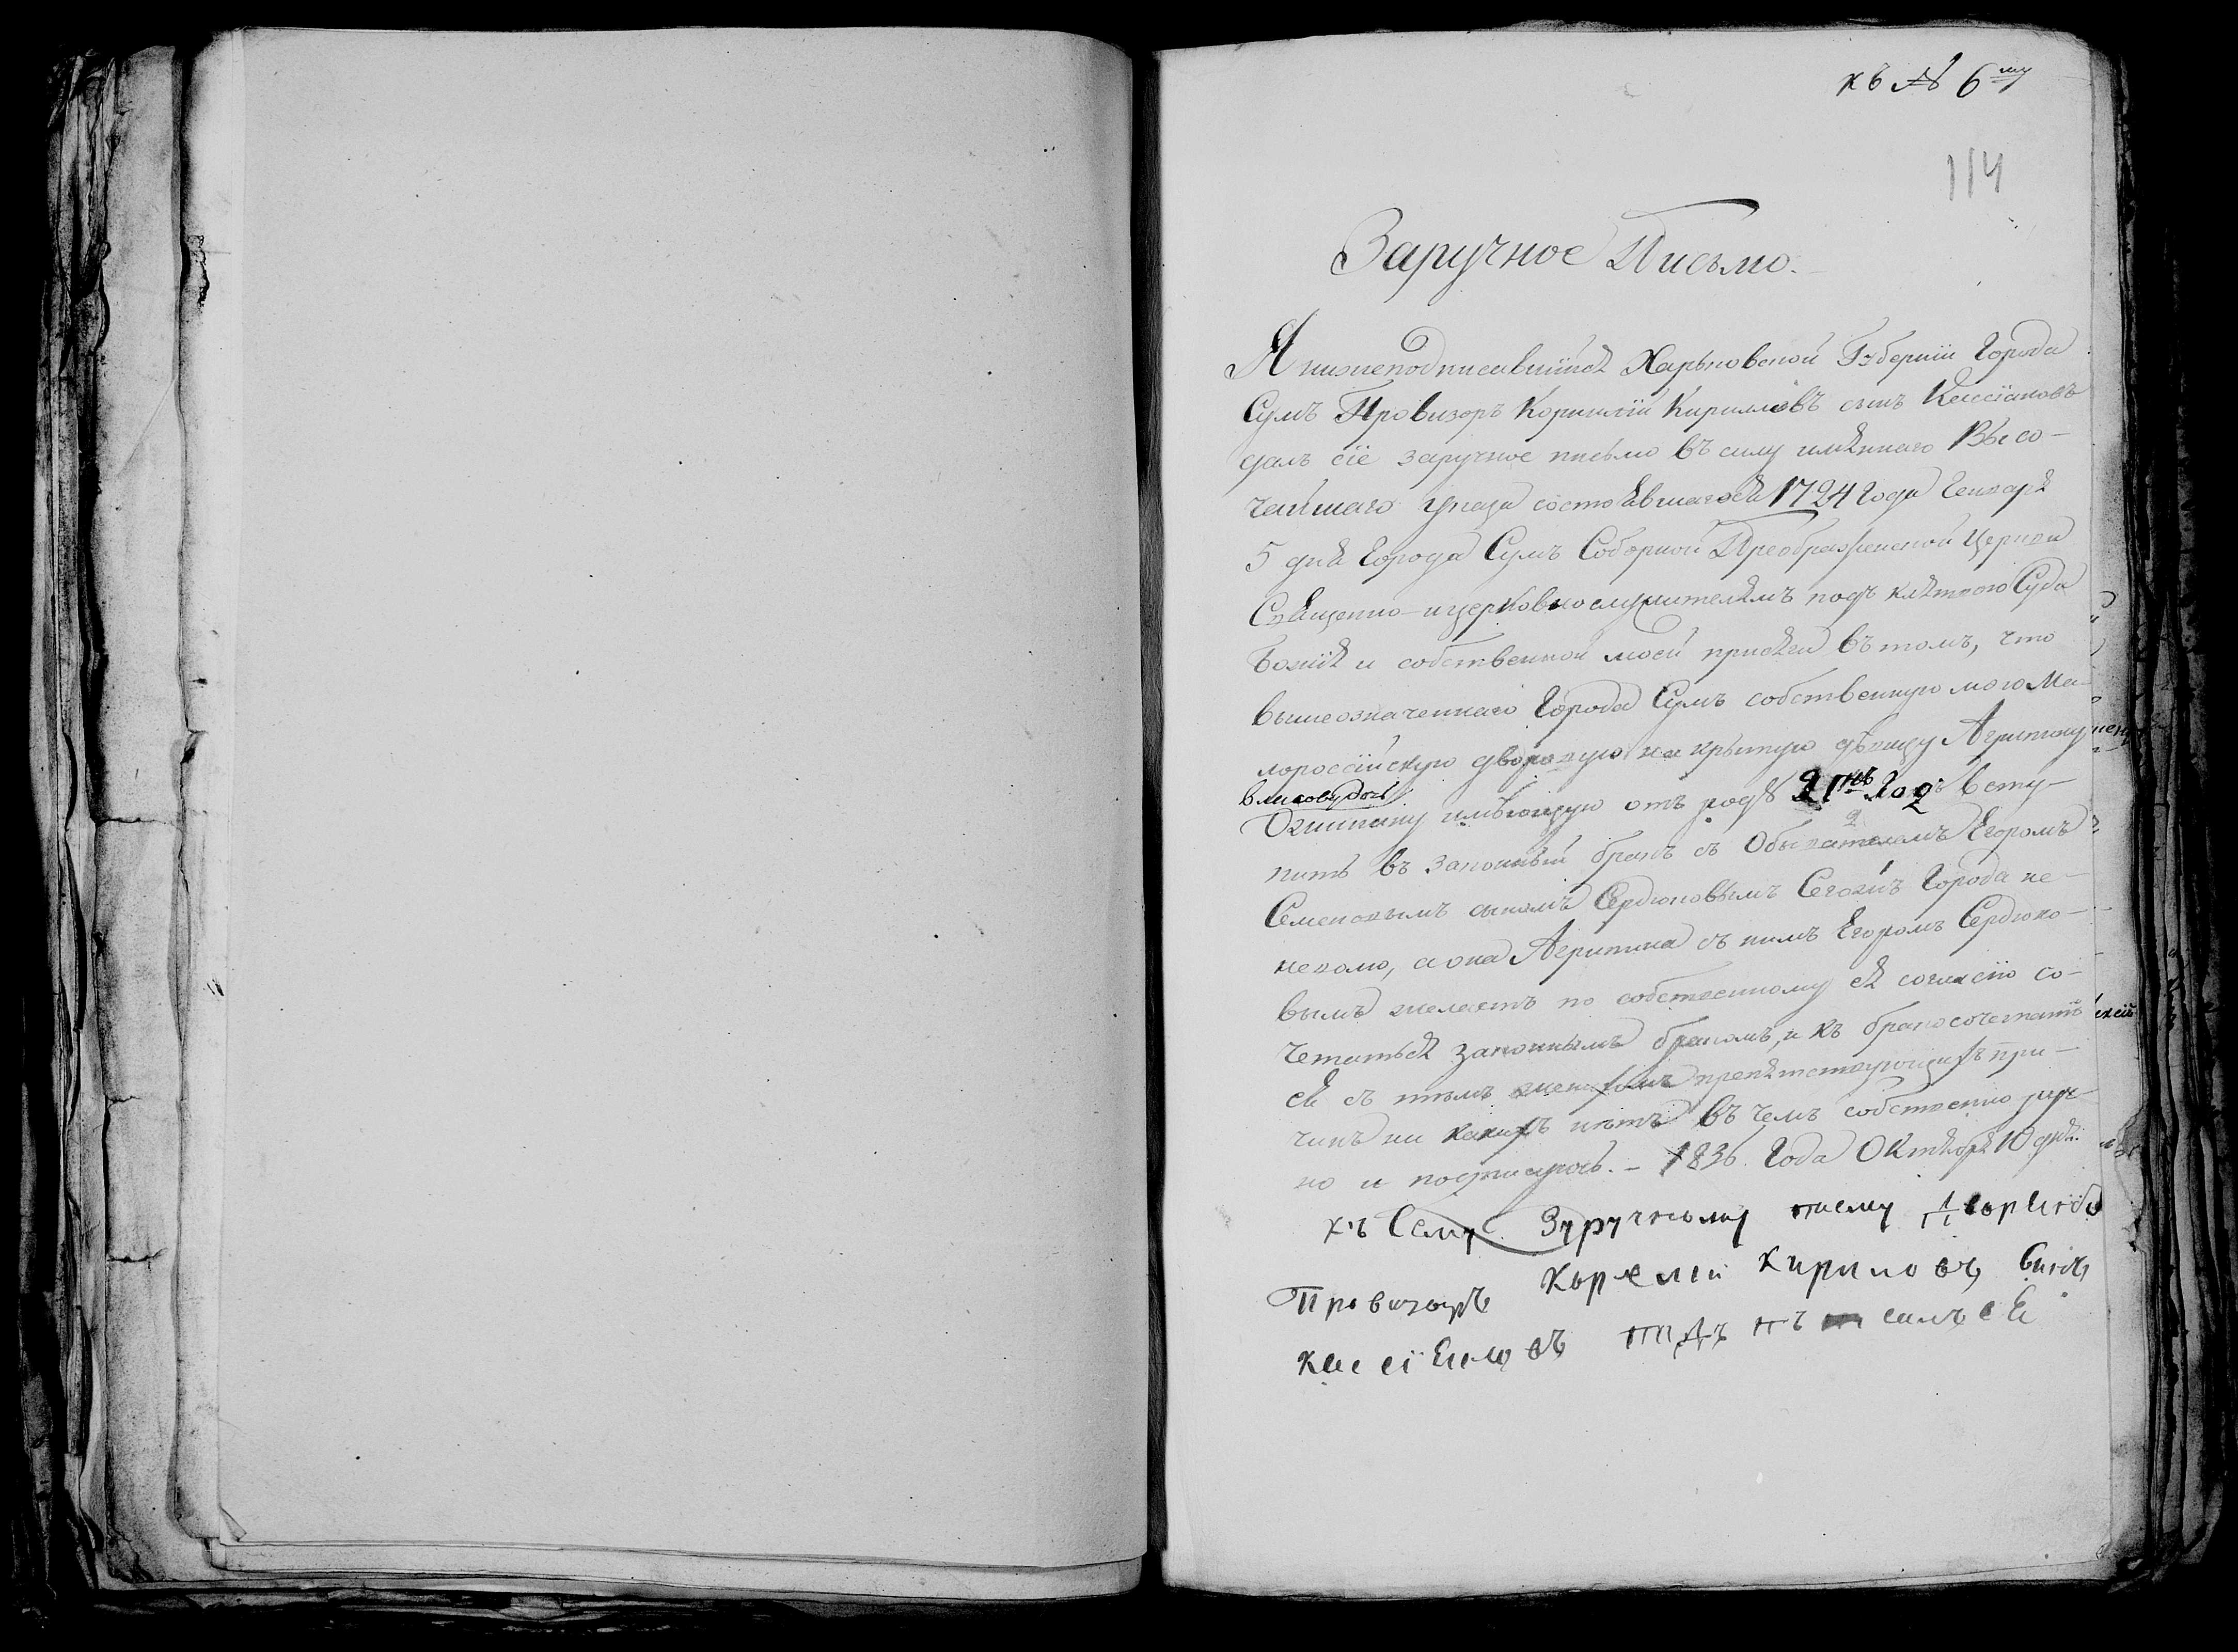 къ № 6му
114
Заручное Письмо.
Я нижеподписавшійся Харьковской Губерніи Города
Сумъ Провизоръ Корнилій Кирилловъ сынъ Кассіановъ
далъ сіе заручное письмо въ силу имяннаго Высо-
чайшаго указа состоявшагося 1724 Года Генваря
5 дня Города Сумъ Соборной Преображенской Церкви
Священно-и церковнослужителямъ подъ клятвою Суда
Божія и собственной моей присяги въ томъ, что
вышеозначеннаго Города Сумъ собственную мою Ма-
лороссійскую дворовую на крытую дѣвицу Агрипину
имѣющую отъ роду 21нъ Годъ всту-
пить въ законный бракъ съ Обывателемъ Егоромъ
Семеновымъ сыномъ Сердюковымъ Сегожъ Города не-
неволю, а она Агрипина съ нимъ Егоромъ Сердюко-
вымъ желаетъ по собственному ея согласію со-
четаться законнымъ бракомъ, и къ бракосочетанію
ея съ тѣмъ женихомъ препятствующихъ при-
чинъ ни какихъ нѣтъ въ чемъ собственно руч-
но и подпишусь. - 1836. Года Октября 10 дня.
къ Сему Зуручному писму
Провизоръ Корнелій Кириловъ Синъ
Кассіяновъ подъ писалъ ся